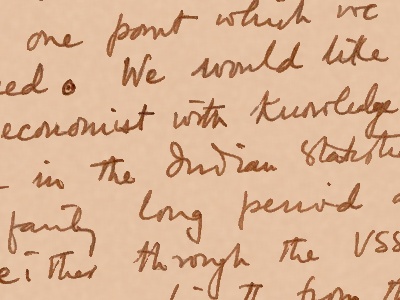 one point which we
We would like
economist with knowledge
in the Indian
fairly long period
either through the VSS
from